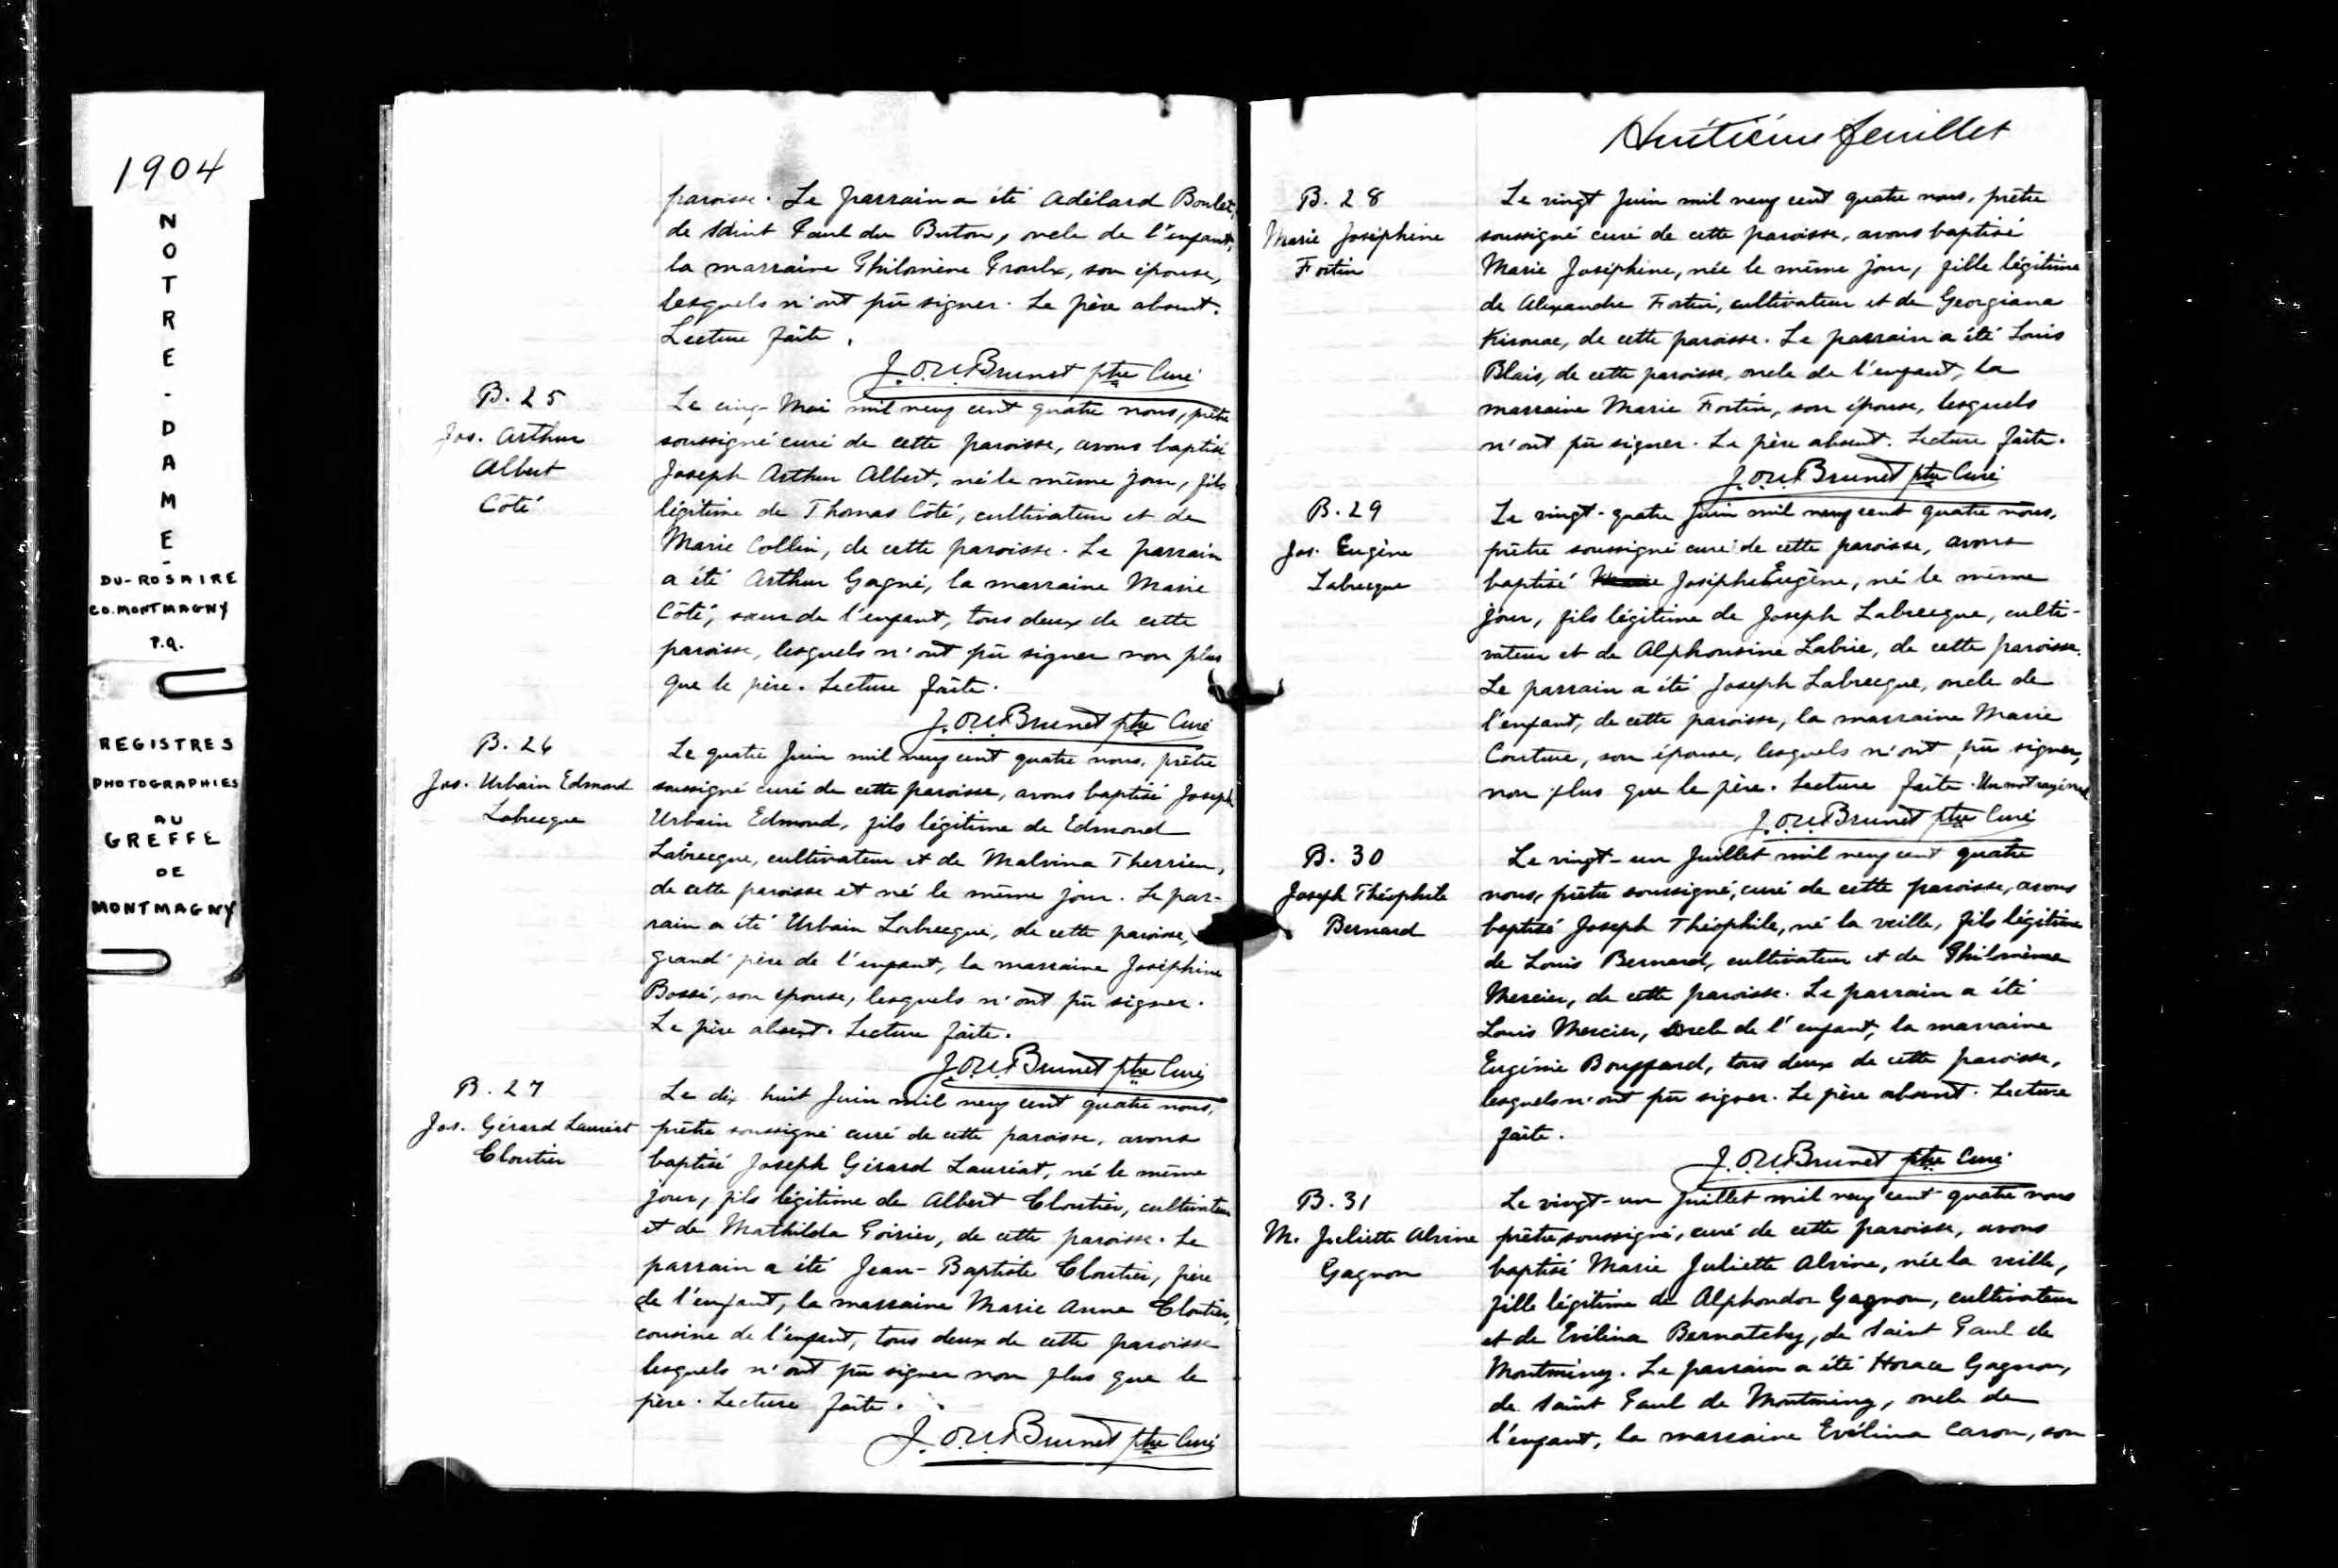 1904
NOTRE-DAME-
DU-ROSAIRE
CO. MONTMAGNY
P.Q.
REGISTRES
PHOTOGRAPHIES
AU
GREFFE
DE
MONTMAGNY
paroisse. Le parrain a été Adélard Boulet,
de Saint Paul du Buton, oncle de l'enfant,
la marraine Philomène Proulx, son épouse,
lesquels n'ont pû signer. Le père absent.
Lecture faite.
J.O.U. Brunet ptre Curé
B. 25
Jos. Arthur
Albert
Côté
Le cinq Mai mil neuf cent quatre nous, prêtre
soussigné curé de cette paroisse, avons baptisé
Joseph Arthur Albert, né le même jour, fils
légitime de Thomas Côté, cultivateur et de
Marie Collin, de cette paroisse. Le parrain
a été Arthur Gagné, la marraine Marie
Côté, sœur de l'enfant, tous deux de cette
paroisse, lesquels n'ont pû signer non plus
que le père. Lecture faite.
J.O.U. Brunet ptre Curé
B. 26
Jos. Urbain Edmond
Labrecque
Le quatre Juin mil neuf cent quatre nous, prêtre
soussigné curé de cette paroisse, avons baptisé Joseph
Urbain Edmond, fils légitime de Edmond
Labrecque, cultivateur et de Malvina Therrien,
de cette paroisse et né le même jour. Le par-
rain a été Urbain Labrecque, de cette paroisse,
grand'père de l'enfant, la marraine Joséphine
Bossé, son épouse, lesquels n'ont pû signer.
Le père absent. Lecture faite.
J.O.U. Brunet ptre Curé
B. 27
Jos. Gérard Lauréat
Cloutier
Le dix huit Juin mil neuf cent quatre nous,
prêtre soussigné curé de cette paroisse, avons
baptisé Joseph Gérard Lauréat, né le même
jour, fils légitime de Albert Cloutier, cultivateur
et de Mathilda Poirier, de cette paroisse. Le
parrain a été Jean-Baptiste Cloutier, frère
de l'enfant, la marraine Marie Anna Cloutier,
cousine de l'enfant, tous deux de cette paroisse
lesquels n'ont pû signer non plus que le
père. Lecture faite.
J.O.U. Brunet ptre Curé
Huitième feuillet
B. 28
Marie Joséphine
Fortin
Le vingt Juin mil neuf cent quatre nous, prêtre
soussigné curé de cette paroisse, avons baptisé
Marie Joséphine, née le même jour, fille légitime
de Alexandre Fortin, cultivateur et de Georgiana
Kirouac, de cette paroisse. Le parrain a été Louis
Blais, de cette paroisse, oncle de l'enfant, la
marraine Marie Fortin, son épouse, lesquels
n'ont pû signer. Le père absent. Lecture faite.
J.O.U. Brunet ptre Curé
B. 29
Jos. Eugène
Labrecque
Le vingt-quatre Juin mil neuf cent quatre nous,
prêtre soussigné curé de cette paroisse, avons
baptisé Joseph Eugène, né le même
jour, fils légitime de Joseph Labrecque, culti-
vateur et de Alphonsine Labrie, de cette paroisse.
Le parrain a été Joseph Labrecque, oncle de
l'enfant, de cette paroisse, la marraine Marie
Couture, son épouse, lesquels n'ont pû signer,
non plus que le père. Lecture faite. Un mot rayé nul
J.O.U. Brunet ptre Curé
B. 30
Joseph Théophile
Bernard
Le vingt-un Juillet mil neuf cent quatre
nous, prêtre soussigné, curé de cette paroisse, avons
baptisé Joseph Théophile, né la veille, fils légitime
de Louis Bernard, cultivateur et de Philomène
Mercier, de cette paroisse. Le parrain a été
Louis Mercier, oncle de l'enfant, la marraine
Eugénie Bouffard, tous deux de cette paroisse,
lesquels n'ont pû signer. Le père absent. Lecture
faite.
J.O.U. Brunet ptre Curé
B. 31
M. Juliette Alvine
Gagnon
Le vingt-un Juillet mil neuf cent quatre nous
prêtre soussigné, curé de cette paroisse, avons
baptisé Marie Juliette Alvine, née la veille,
fille légitime de Alphondor Gagnon, cultivateur
et de Evélina Bernatchez, de Saint Paul de
Montminy. Le parrain a été Horace Gagnon,
de Saint Paul de Montminy, oncle de
l'enfant, la marraine Evélina Caron, son